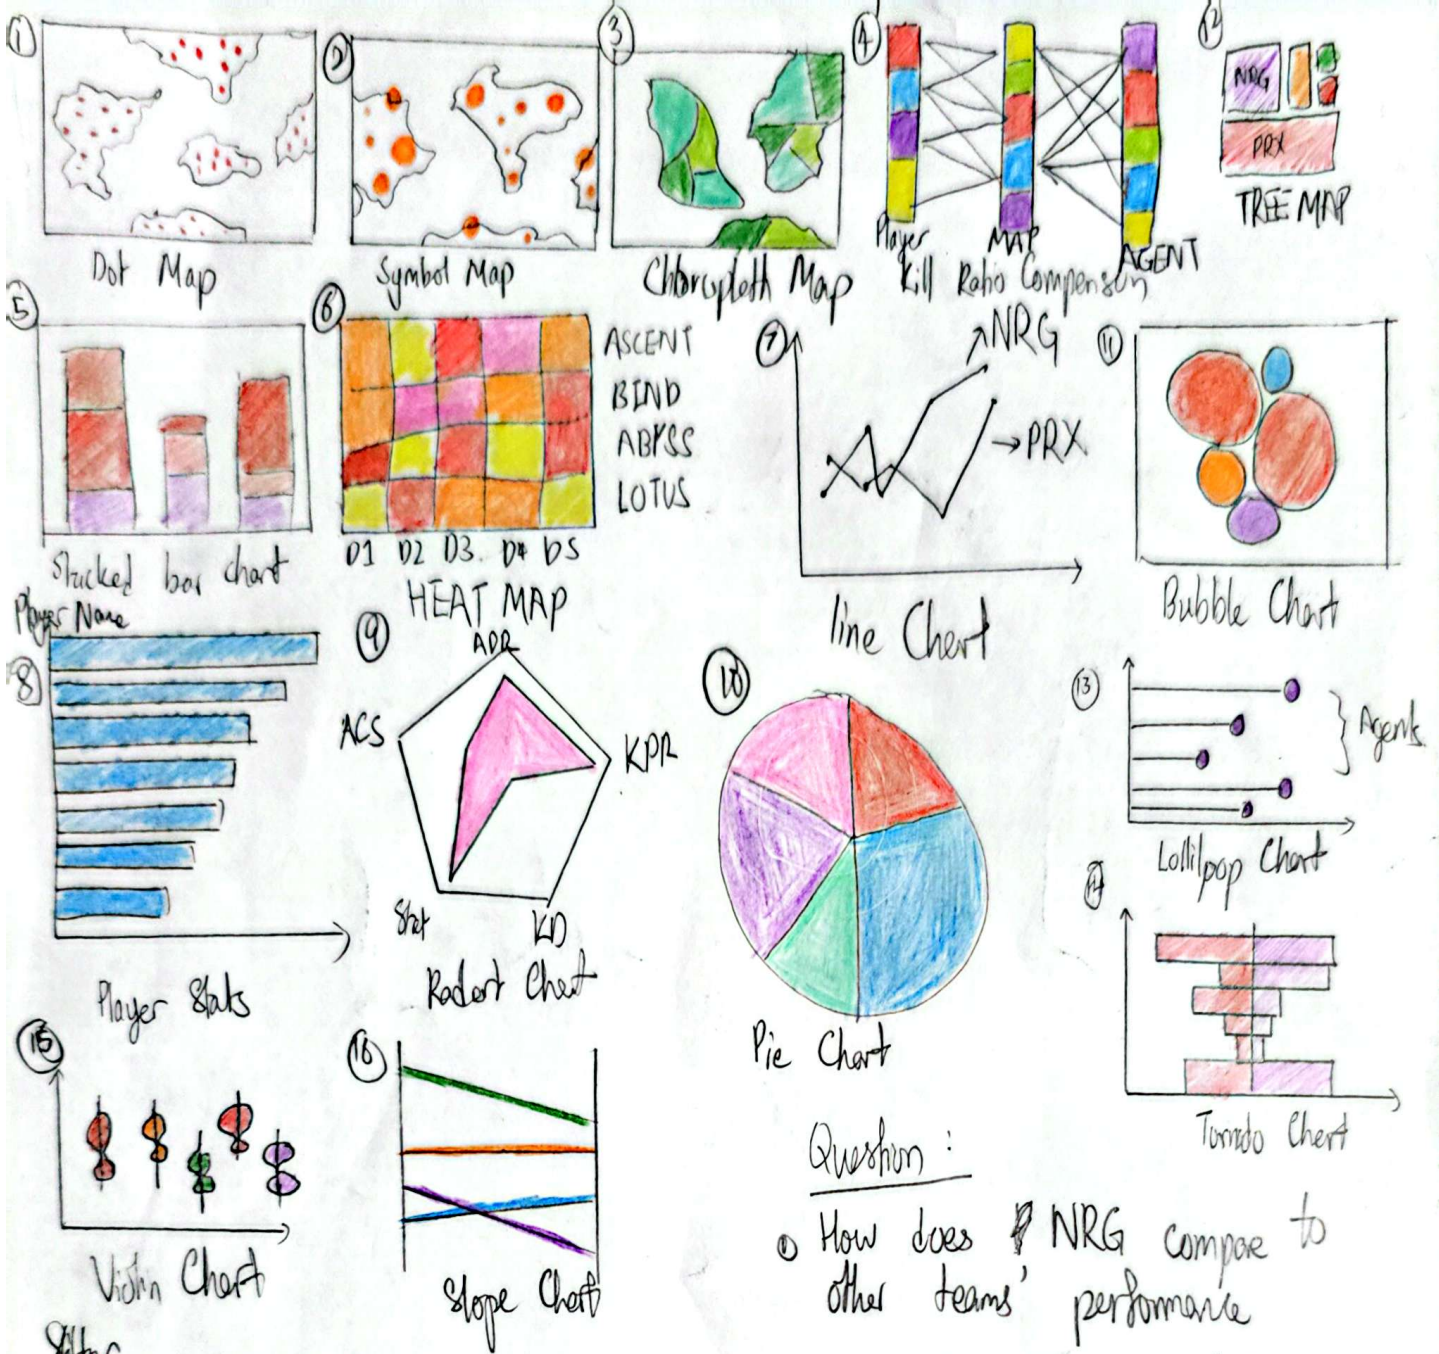 1
Dot Map
2
Symbol Map
3
Chloropleth Map
4
Player
MAP
AGENT
Kill Ratio Comperison
12
NRG
PRX
TREE MAP
5
Stacked bar chart
6
ASCENT
BIND
ABYSS
LOTUS
D1 D2 D3. D4 D5
HEAT MAP
7
NRG
PRX
line Chart
11
Bubble Chart
Player Name
8
Player Stats
9
ADR
ACS
KPR
Stat
KD
Radart Chart
10
Pie Chart
13
Agents
Lollipop Chart
14
Tornado Chart
15
Violin Chart
16
Slope Chart
Question :
How does NRG compare to
other teams' performance